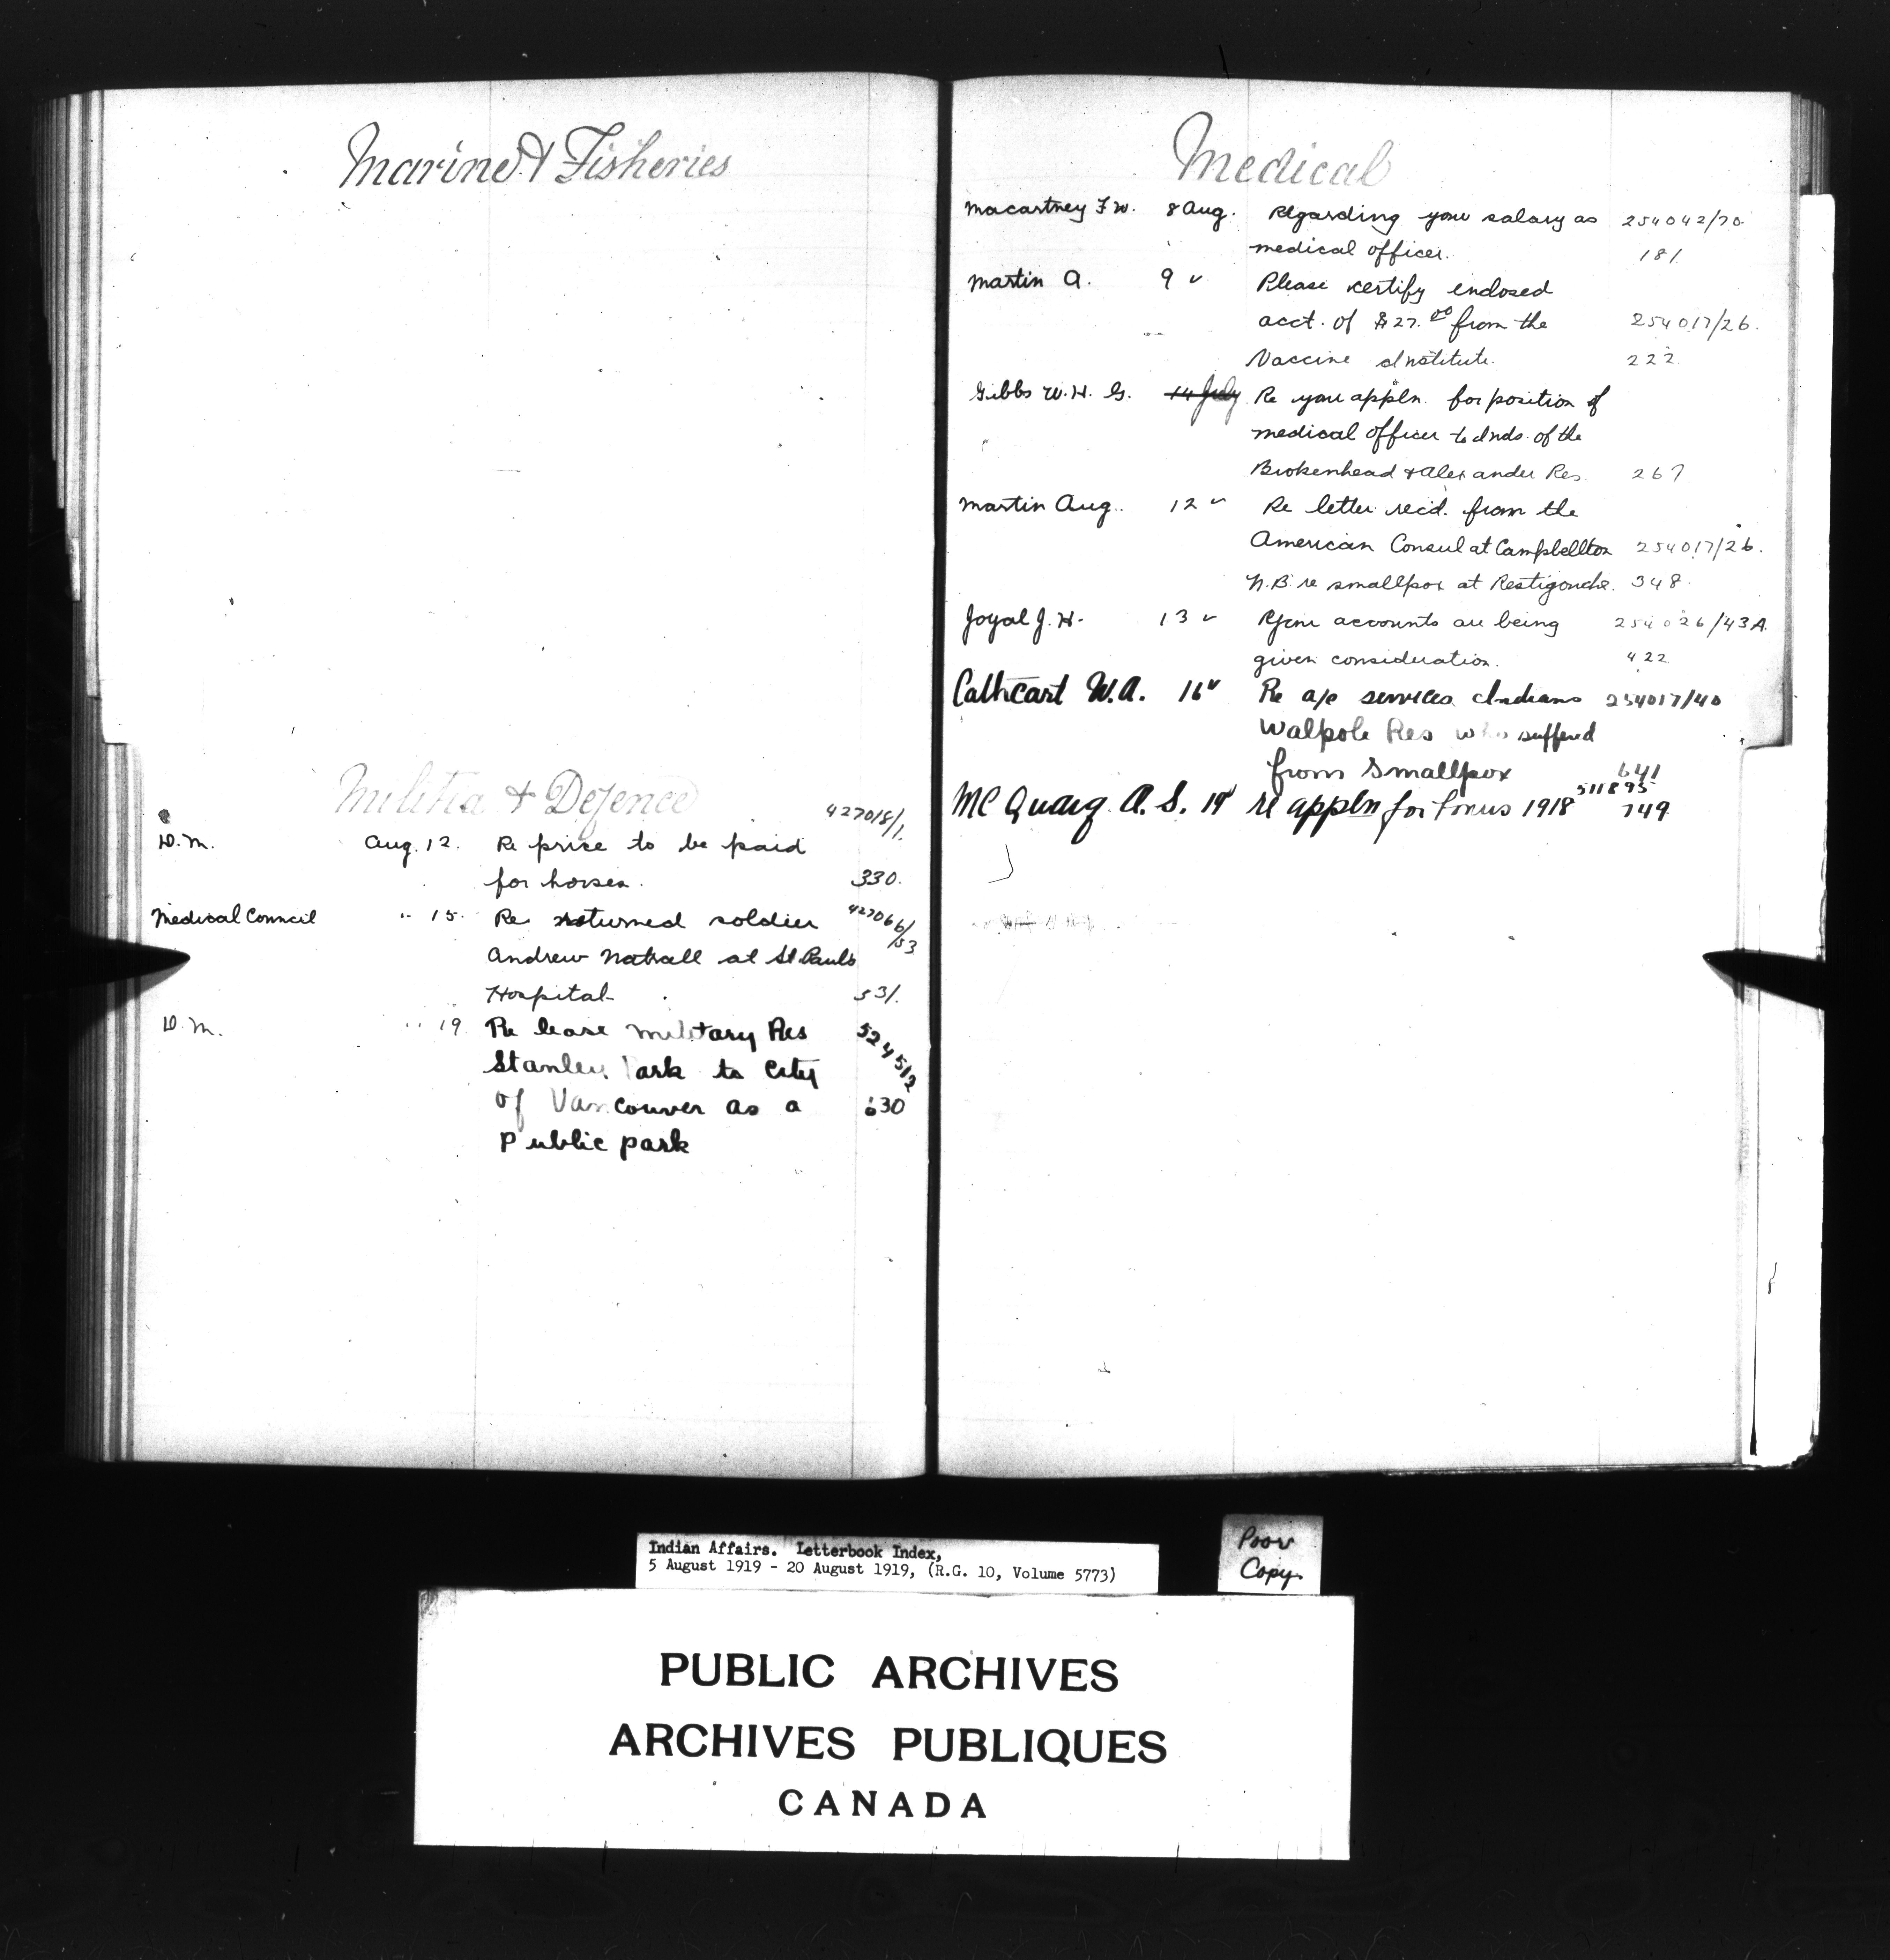 Marine & Fisheries
Militia & Defence
427018/1.
D.M. Aug. 12. Re price to be paid
for horses. 330.
Medical Council " 15. Re returned soldier 427066/53
Andrew Natrall at St Pauls
Hospital 531.
D.M. " 19 Re lease military Res 524512
Stanley Park to City
of Vancouver as a 630
Public park
Medical
Macartney F.W. 8 Aug. Regarding your salary as 254042/70.
medical officer. 181
Martin A. 9 " Please certify enclosed
acct. of $27.00 from the 254017/26.
Vaccine Institute. 222
Gibbs W.H.G. 14 July Re your appln. for position of
medical officer to Inds. of the
Brokenhead & Alexander Res. 267
Martin Aug. 12 " Re letter rec'd. from the
American Consul at Campbellton 254017/26.
N.B. re smallpox at Restigouche. 348.
Joyal J.H. 13 " accounts are being 254026/43A.
given consideration. 422
Cathcart W.A. 16 " Re a/c services Indians 254017/40
Walpole Res who suffered
from Smallpox 641
511895
McQuaig A.S. 19 " re appln for 1918 749
Indian Affairs. Letterbook Index,
5 August 1919 - 20 August 1919, (R.G. 10, Volume 5773)
Poor
Copy.
PUBLIC ARCHIVES
ARCHIVES PUBLIQUES
CANADA